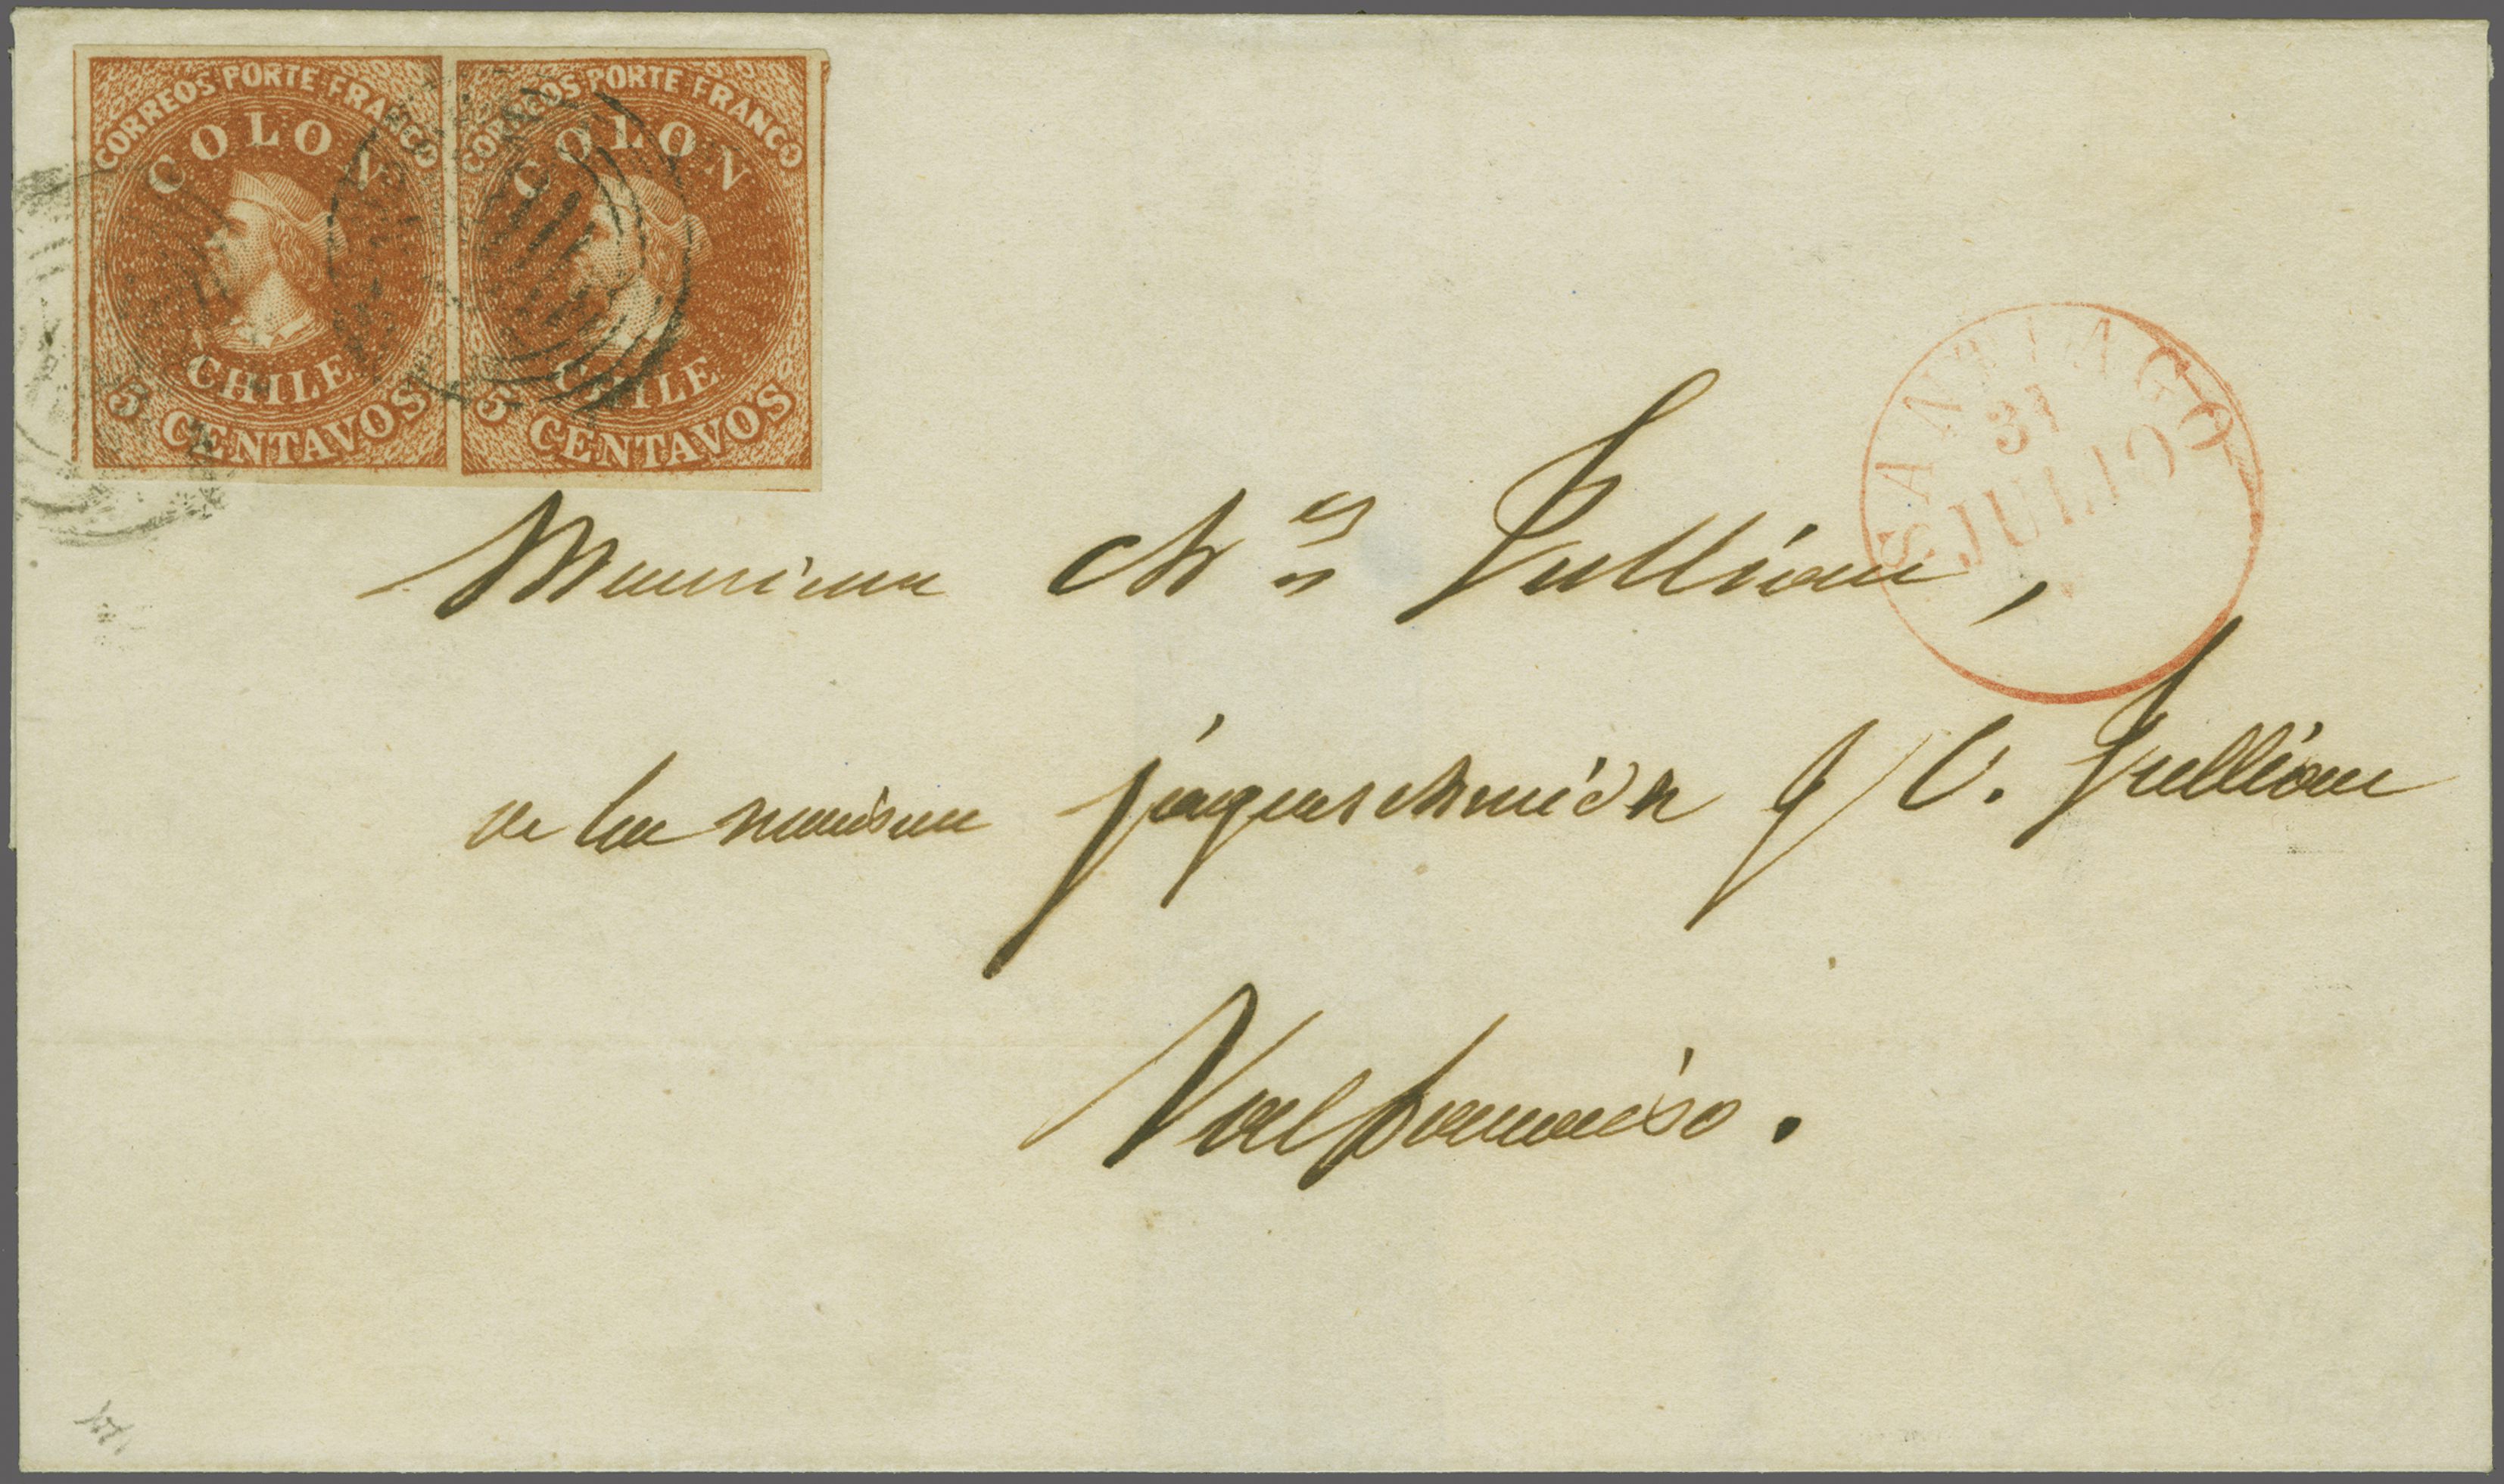 CORREOS PORTE FRANCO
COLON
CHILE
5 CENTAVOS
CORREOS PORTE FRANCO
COLON
CHILE
5 CENTAVOS
SANTIAGO
31
JULIO
Monsieur Ch.es Jullian,
de la maison J. C. Jullian
Valparaiso.